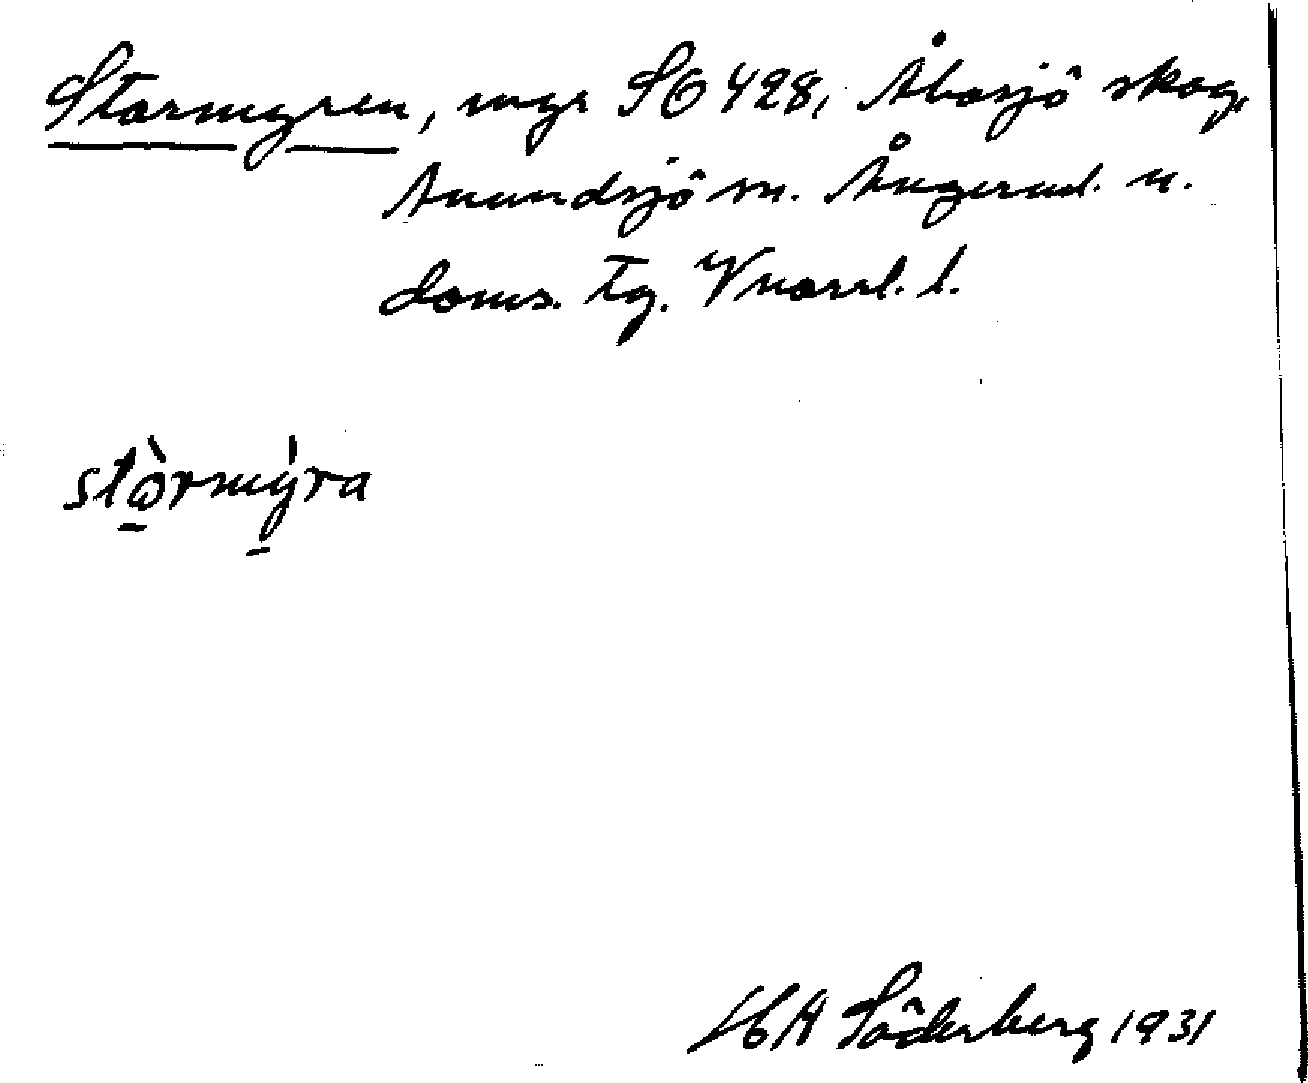 Stormyren, myr SO 428, Åbosjö skog,
Anundsjö sn. Ångerml. n.
doms. tg. Vnorrl. l.
stòrmýra
Söderberg 1931